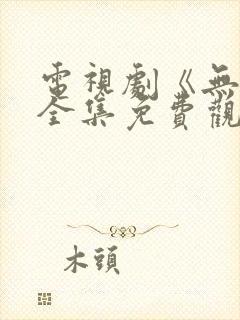 電視劇《無
全集免費觀
木頭